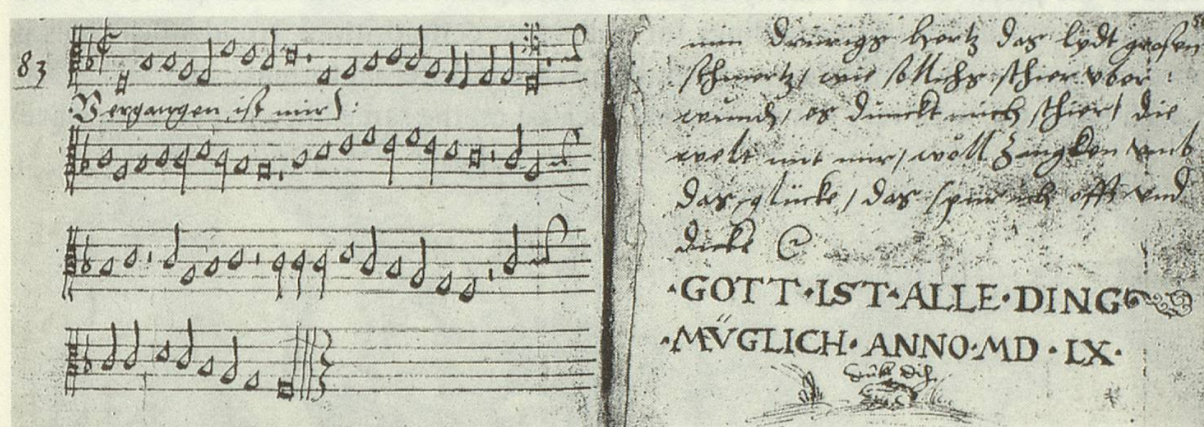 83
Vergangen ist mir :
mein drürigs hertz das lydt großen
schmertz / wie sollichs schier vber:
wundē / es dunckt mich schier / die
welt mit mir / wöll zangken vmb
das glücke / das spür ich offt vnd
dicke
·GOTT·IST·ALLE·DING
·MÜGLICH·ANNO·MD·LX·